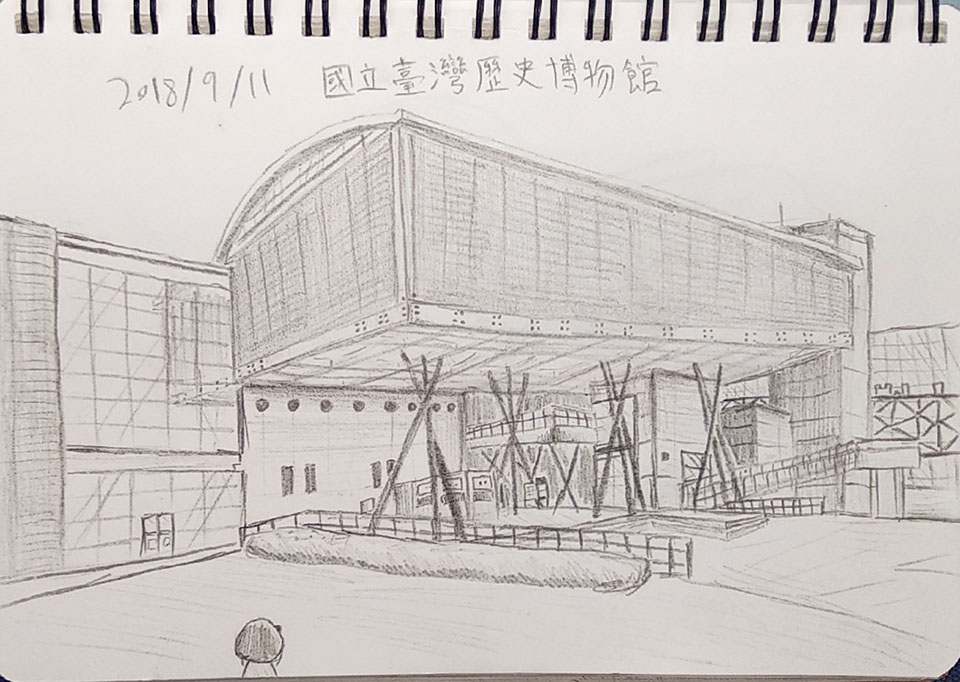 2018/9/11 國立臺灣歷史博物館